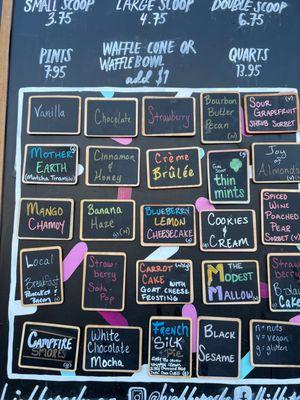 SMALL SCOOP
LARGE SCOOP
DOUBLE SCOOP
3.75
4.75
6.75
PINTS
7.95
WAFFLE CONE OR
WAFFLEBOWL
add $1
QUARTS
13.95
Vanilla
Chocolate
Strawberry
Bourbon
Butter
Pecan
SOUR
GRAPEFRUIT
SHRUB SORBET
MOTHER
EARTH
(Matcha Tiramisu)
Cinnamon
&
Honey
Crème
Brûlée
GSB
thin
mints
Joy
of
Almonds
MANGO
CHAMOY
BANANA
HAZE
BLUEBERRY
LEMON
CHEESECAKE
COOKIES
&
CREAM
SPICED
WINE
POACHED
PEAR
SORBET
Local
Breakfast
&
Bacon
Straw-
berry
Soda-
Pop
CARROT
CAKE
WITH
GOAT CHEESE
FROSTING
THE
MODEST
MALLOW
Straw-
berry
CAMPFIRE
SMORES
WHITE
CHOCOLATE
MOCHA
FRENCH
SILK
PIE
BLACK
SESAME
n = nuts
v = vegan
g = gluten